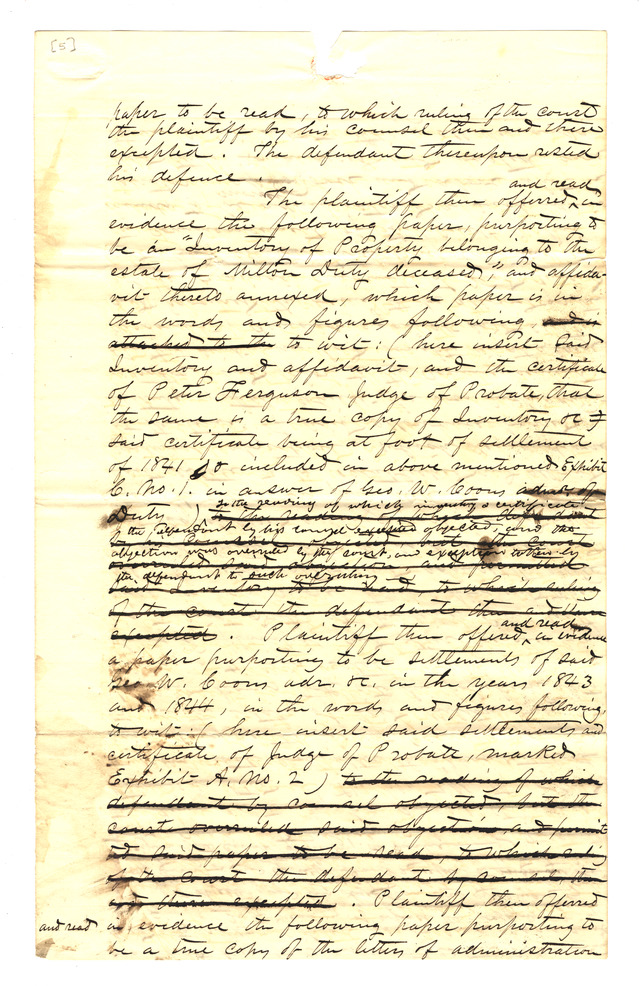 [5]
paper to be read, to which ruling of the court
the plaintiff by his counsel then and there
excepted. The defendant thereupon rested
his defence.
and read
The plaintiff then offerred in
evidence the following paper, purporting to
be an "Inventory of Property belonging to the
estate of Milton Duty deceased," and affida-
vit thereto annexed, which paper is in
the words and figures following and is
attached to the to wit: (here insert said
Inventory and affidavit, and the certificate
of Peter Ferguson Judge of Probate, that
the same is a true copy of Inventory &c
said certificate being at foot of settlement
of 1841 so included in above mentioned Exhibit
C. No. 1. in answer of Geo W. Coons admr. of
Duty) to the reading of which inventory & certificate
the defendant by his counsel excepted objected, and the
objection was overruled by the court, and exception taken by
the defendant to such overruling
said Inventory to be read, to which ruling
of the court the defendant then and there
and read
excepted. Plaintiff then offered in evidence
a paper purporting to be settlements of said
Geo W. Coons adr. &c. in the years 1843
and 1844, in the words and figures following,
to wit: (here insert said settlements and
certificate of Judge of Probate, marked
Exhibit A. No. 2) to the reading of which
defendant by counsel objected, but the
court overruled said objection and permit
ed said paper to be read, to which ruling
of the court the defendant by counsel then
and there excepted. Plaintiff then offerred
and read in evidence the following paper purporting to
be a true copy of the letters of administration